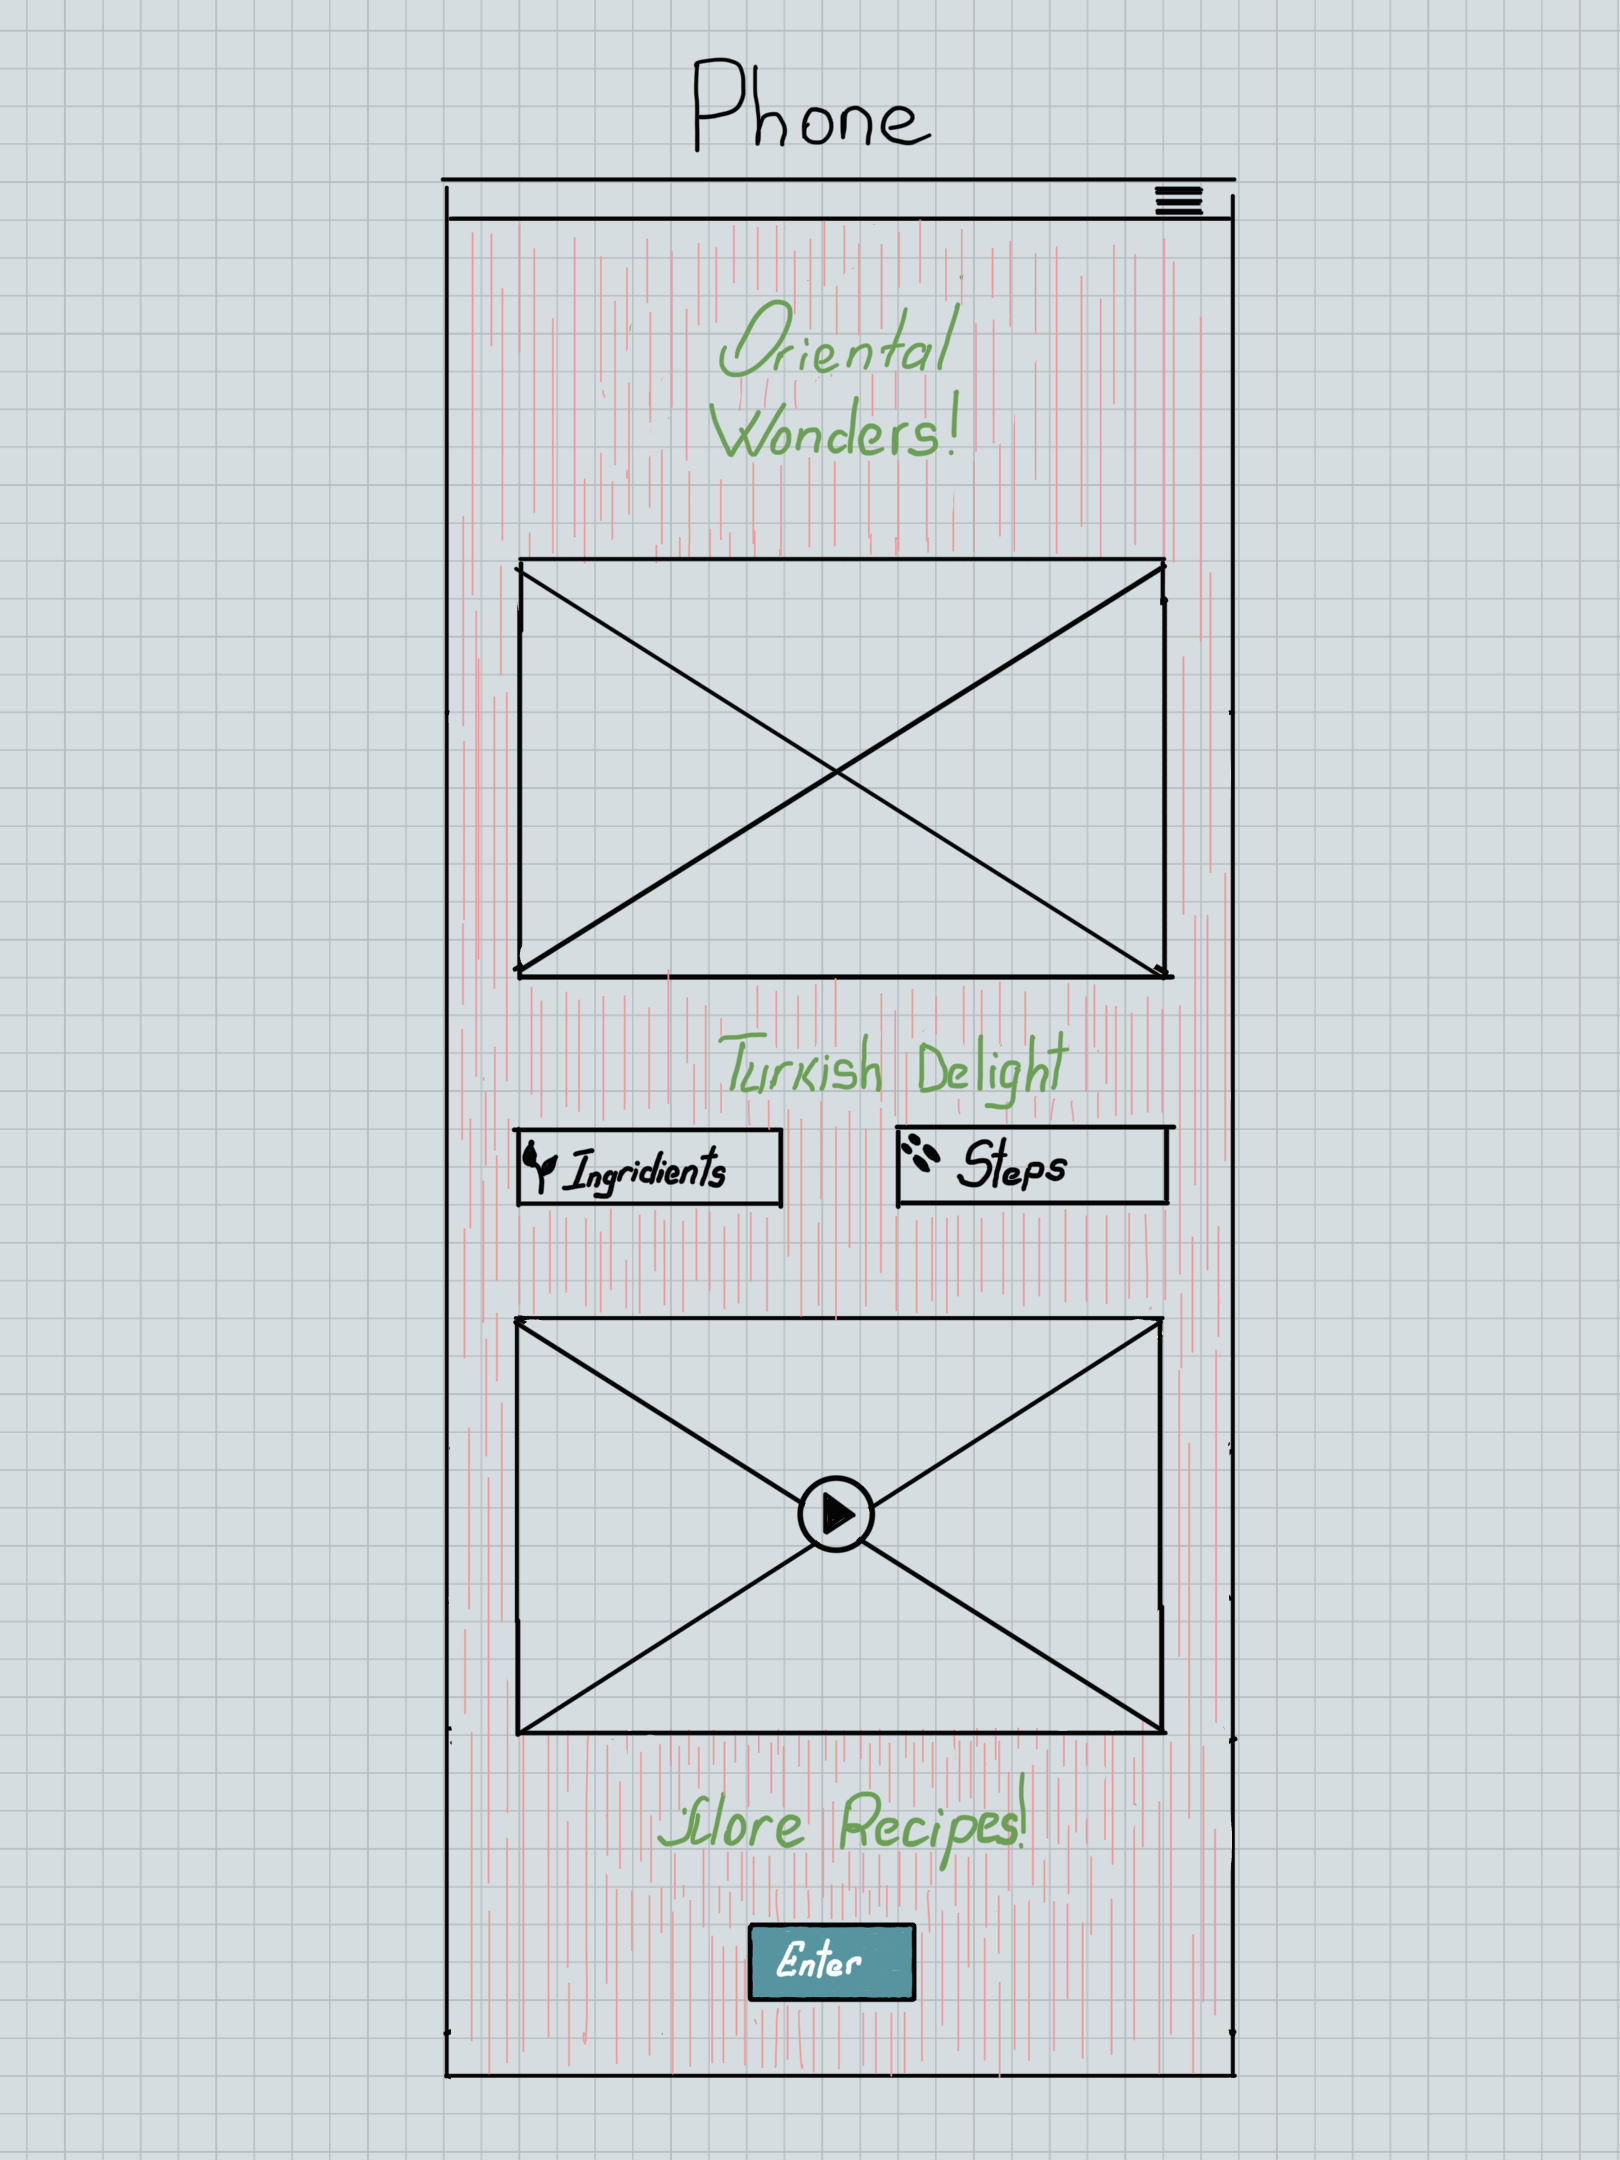 Phone
Oriental
Wonders!
Turkish Delight
Ingridients
Steps
More Recipes!
Enter